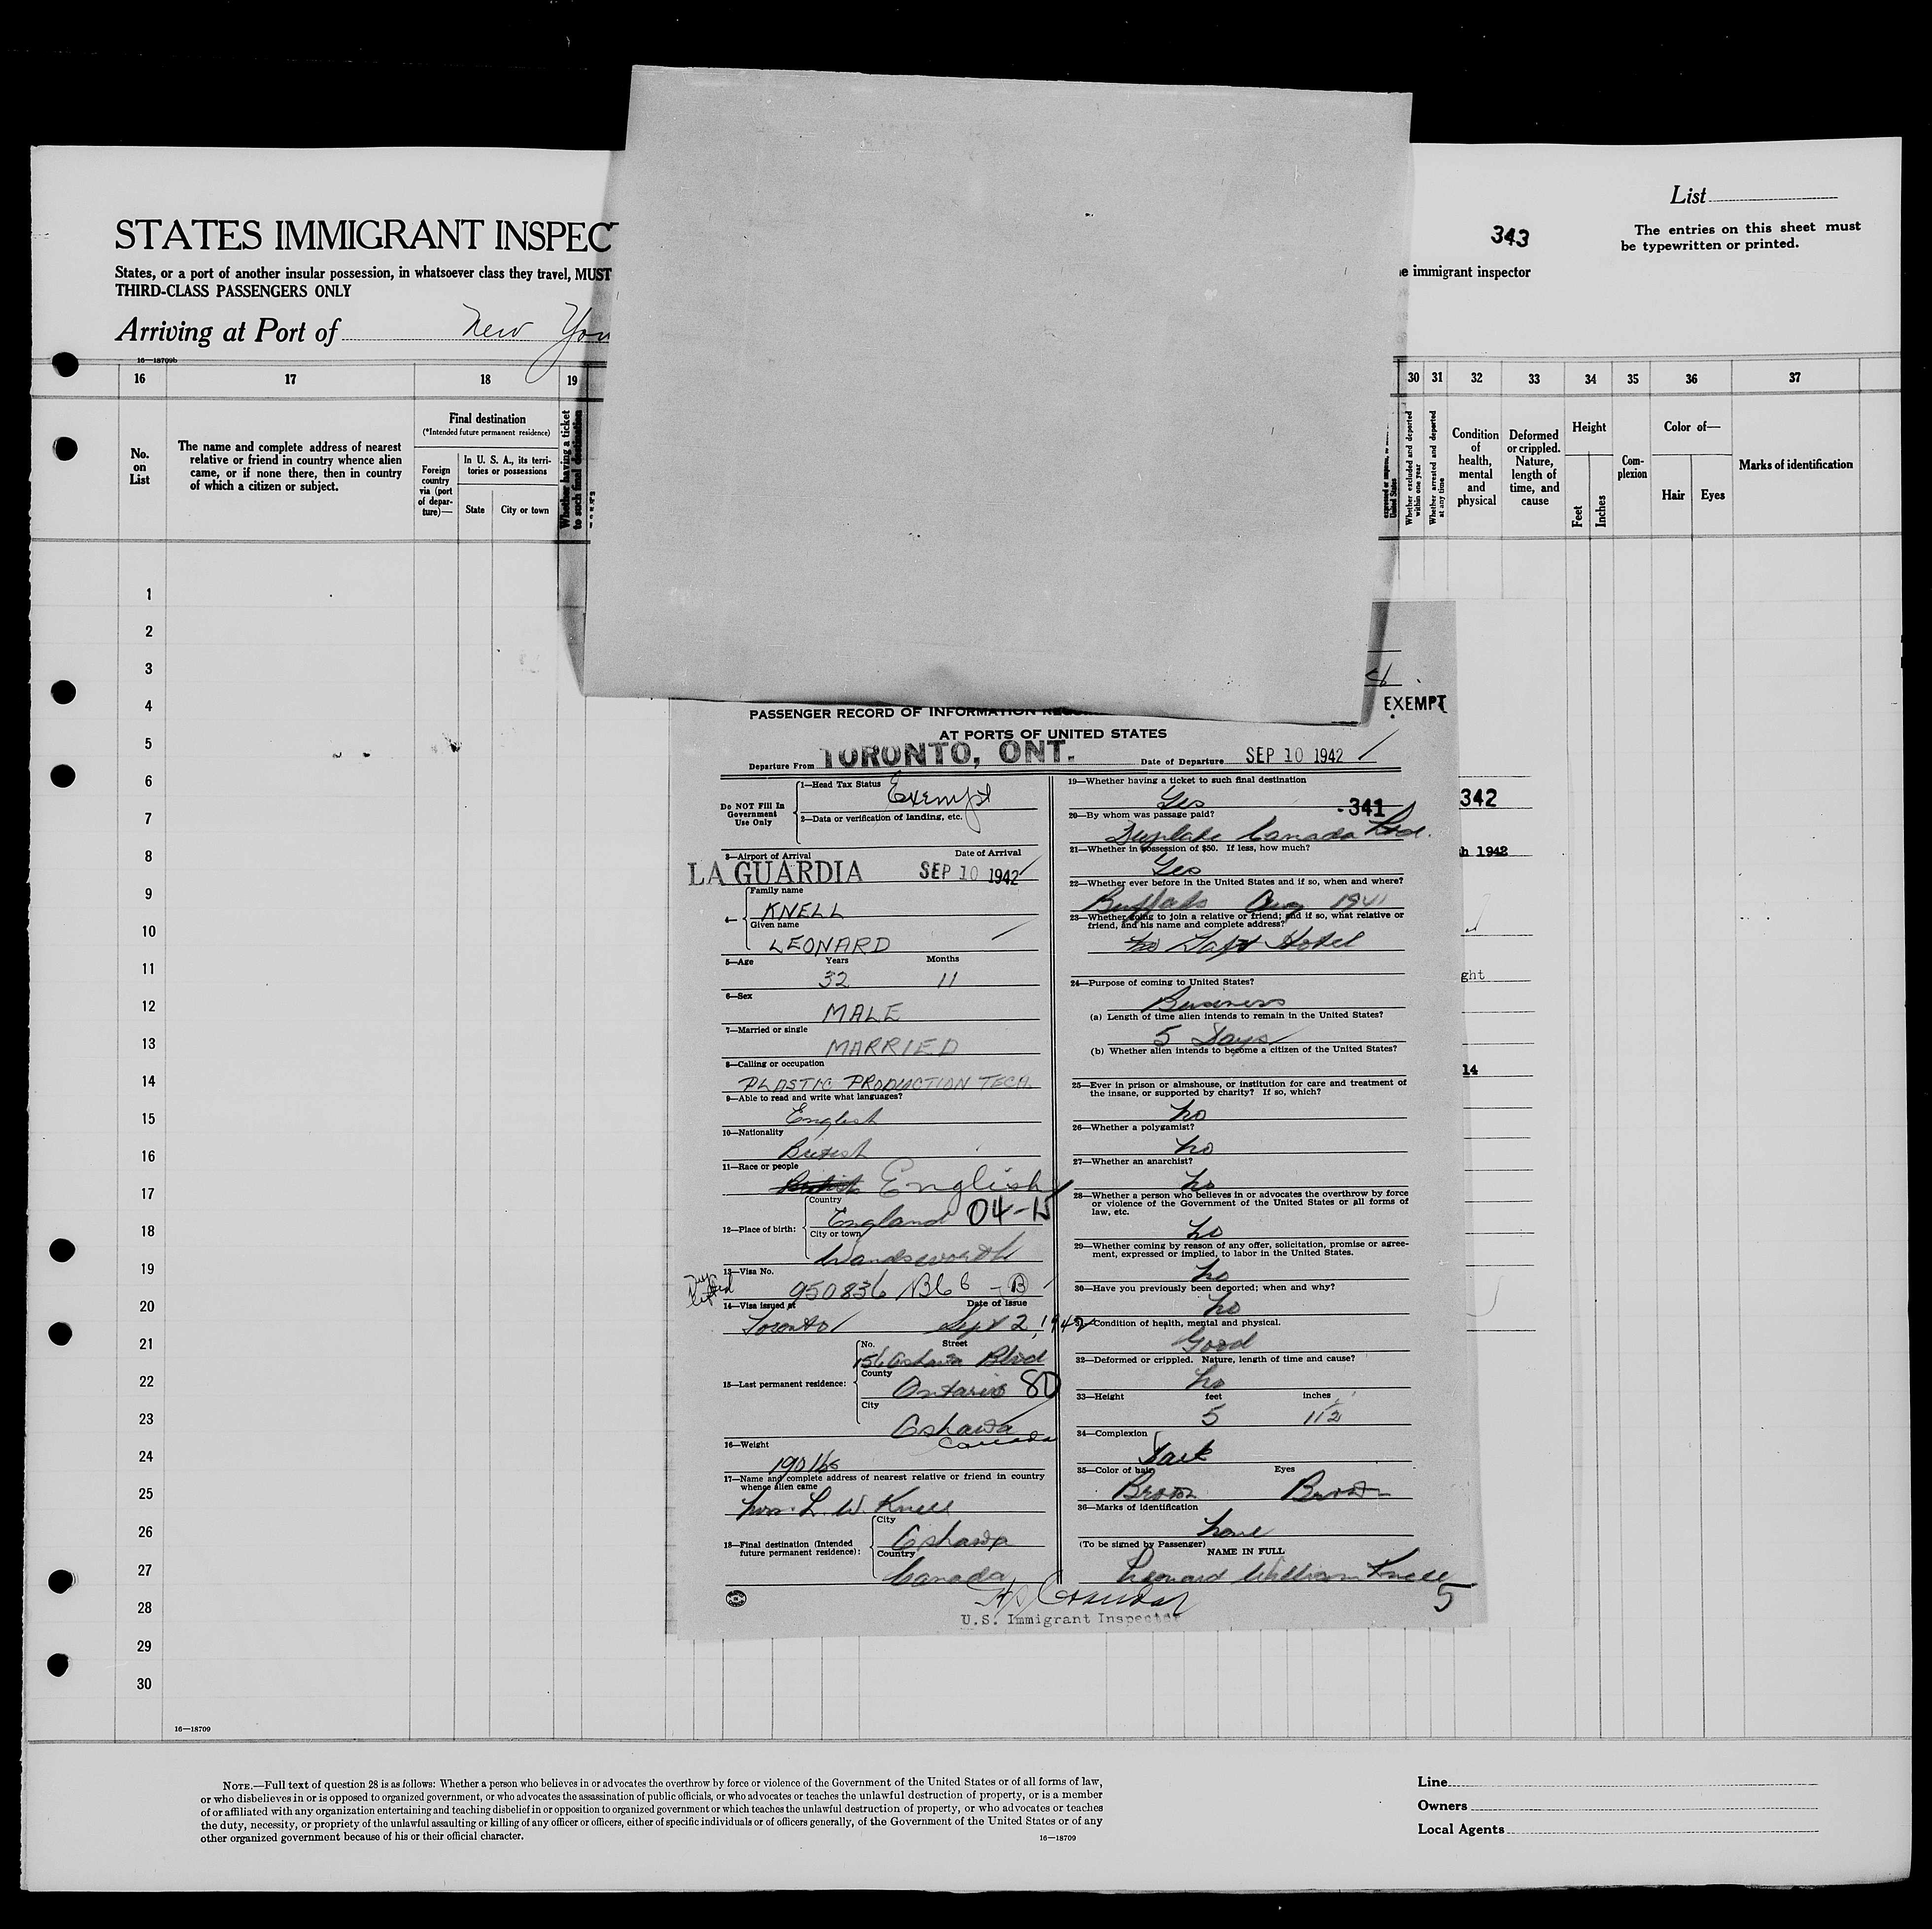 List
343
The entries on this sheet must
be typewritten or printed.
STATES IMMIGRANT INSPEC
States, or a port of another insular possession, in whatsoever class they travel, MUST
e immigrant inspector
THIRD-CLASS PASSENGERS ONLY
Arriving at Port of New You
16—18709b
16 17 18 19 30 31 32 33 34 35 36 37
No. on List
The name and complete address of nearest
relative or friend in country whence alien
came, or if none there, then in country
of which a citizen or subject.
Final destination
(*Intended future permanent residence)
Foreign country via (port of depar-ture)—
In U. S. A., its terri-
tories or possessions
State City or town
Whether having a ticket
to such final destination
United States
Whether excluded and deported
within one year
Whether arrested and deported
at any time
Condition of health, mental and physical
Deformed or crippled. Nature, length of time, and cause
Height
Feet Inches
Com-plexion
Color of—
Hair Eyes
Marks of identification
1
2
3
4
5
6
7
8
9
10
11
12
13
14
15
16
17
18
19
20
21
22
23
24
25
26
27
28
29
30
EXEMPT
PASSENGER RECORD OF INFORMATION
AT PORTS OF UNITED STATES
Departure From TORONTO, ONT. Date of Departure SEP 10 1942
Do NOT Fill In
Government
Use Only
1—Head Tax Status Exempt
2—Data or verification of landing, etc.
3—Airport of Arrival Date of Arrival
LA GUARDIA SEP 10 1942
4— Family name
KNELL
Given name
LEONARD
5—Age Years Months
32 11
6—Sex
MALE
7—Married or single
MARRIED
8—Calling or occupation
PLASTIC PRODUCTION TECH.
9—Able to read and write what languages?
English
10—Nationality
British
11—Race or people
British English
12—Place of birth: Country
England 04-15
City or town
Wandsworth
13—Visa No.
950836
14—Visa issued at Date of Issue
Toronto Sept 2, 1942
15—Last permanent residence: No. Street
156 Oshawa Blvd
County
Ontario 80
City
Oshawa
Canada
16—Weight
190 lbs
17—Name and complete address of nearest relative or friend in country
whence alien came
Mrs. L. W. Knell
18—Final destination (Intended
future permanent residence):
City
Oshawa
Country
Canada
19—Whether having a ticket to such final destination
Yes -341
20—By whom was passage paid?
Duplate Canada Ltd.
21—Whether in possession of $50. If less, how much?
Yes
22—Whether ever before in the United States and if so, when and where?
Buffalo Aug 1941
23—Whether going to join a relative or friend; and if so, what relative or
friend, and his name and complete address?
no Taft Hotel
24—Purpose of coming to United States?
Business
(a) Length of time alien intends to remain in the United States?
5 Days
(b) Whether alien intends to become a citizen of the United States?
25—Ever in prison or almshouse, or institution for care and treatment of
the insane, or supported by charity? If so, which?
no
26—Whether a polygamist?
no
27—Whether an anarchist?
no
28—Whether a person who believes in or advocates the overthrow by force
or violence of the Government of the United States or all forms of
law, etc.
no
29—Whether coming by reason of any offer, solicitation, promise or agree-
ment, expressed or implied, to labor in the United States.
no
30—Have you previously been deported; when and why?
no
31—Condition of health, mental and physical.
Good
32—Deformed or crippled. Nature, length of time and cause?
no
33—Height feet inches
5 11½
34—Complexion
Dark
35—Color of hair Eyes
Brown Brown
36—Marks of identification
none
(To be signed by Passenger)
NAME IN FULL
Leonard William Knell
5
U.S. Immigrant Inspector
342
h 1942
ght
14
16—18709
NOTE.—Full text of question 28 is as follows: Whether a person who believes in or advocates the overthrow by force or violence of the Government of the United States or of all forms of law,
or who disbelieves in or is opposed to organized government, or who advocates the assassination of public officials, or who advocates or teaches the unlawful destruction of property, or is a member
of or affiliated with any organization entertaining and teaching disbelief in or opposition to organized government or which teaches the unlawful destruction of property, or who advocates or teaches
the duty, necessity, or propriety of the unlawful assaulting or killing of any officer or officers, either of specific individuals or of officers generally, of the Government of the United States or of any
other organized government because of his or their official character.
16—18709
Line
Owners
Local Agents